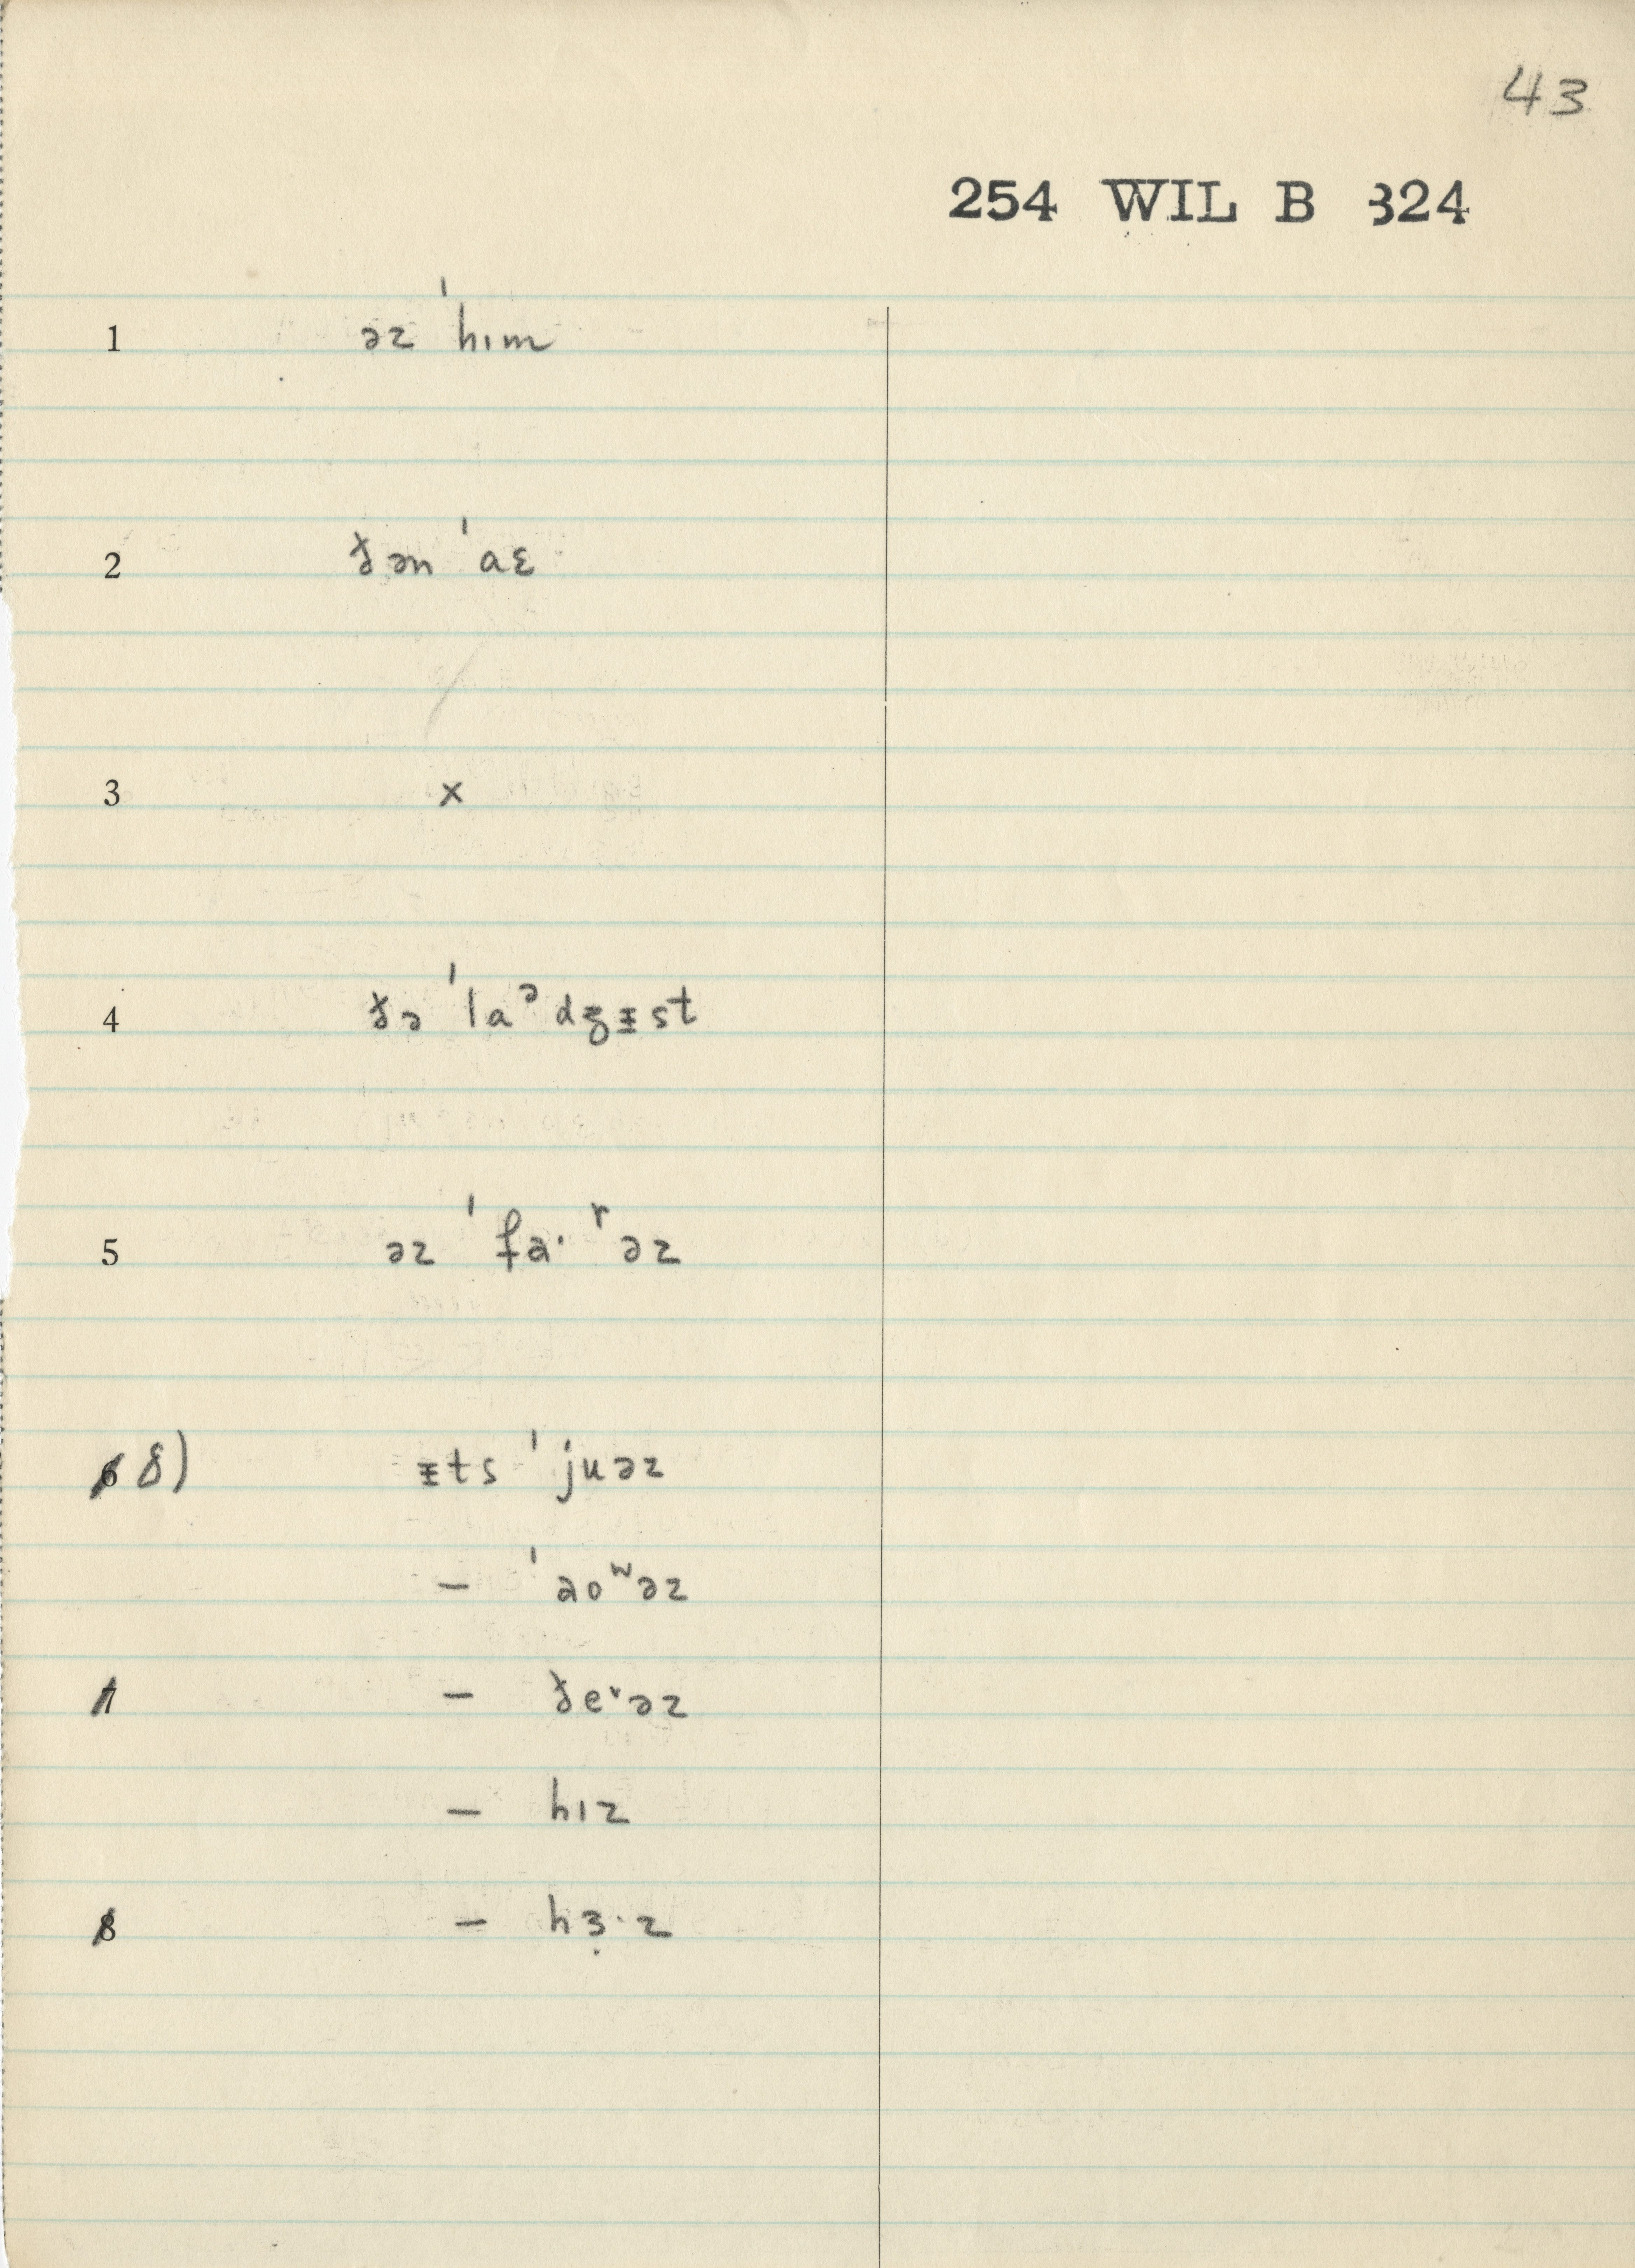 43
254 WIL B 324
1 əz ˈhɪm
2 ðən ˈaɛ
3 x
4 ðə ˈlaᵊdʒɪ̵st
5 əz ˈfaˑʳəz
6 8) ɪ̵ts ˈjuəz
– ˈaoʷəz
7 – ðeʳəz
– hɪz
8 – hɜ̣ˑz